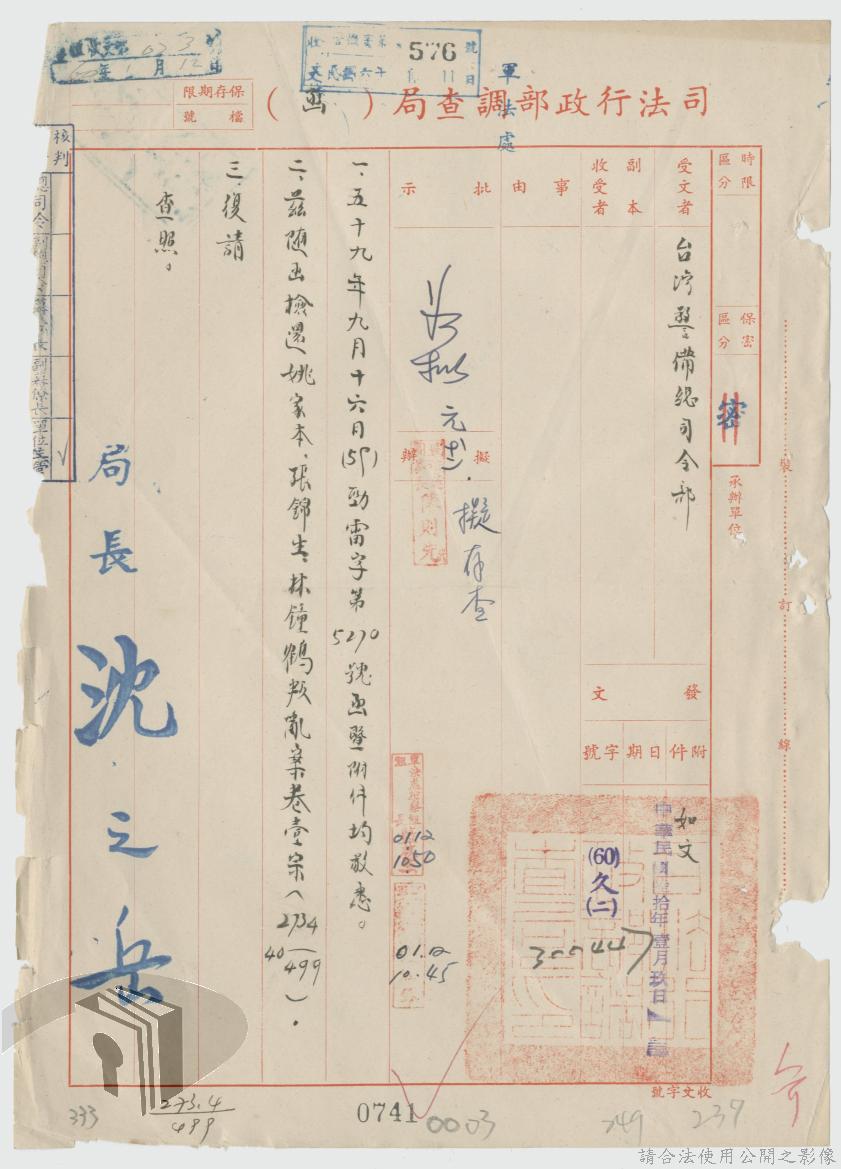 司法行政部調查局（函）
軍法處
保存期限
檔號
收文
576號
時限區分
保密區分
密
承辦單位
受文者
台灣警備總司令部
副本收受者
發文
附件
如文
日期
中華民國陸拾年壹月玖日
字號
(60)久(二)
300447
事由
批示
擬辦
擬存查
一、五十九年九月十六日(59)勁雷字第5270號函暨附件均敬悉。
二、茲隨函檢還姚家本、張錦生、林鐘鶴叛亂案卷壹宗（2734/40499）。
三、復請
查照。
局長 沈之岳
核判
總司令
單位主管
01.12
1050
01.12
10.45
裝
訂
線
收文字號
333
273.4
499
0741
0003
249
239
請合法使用公開之影像